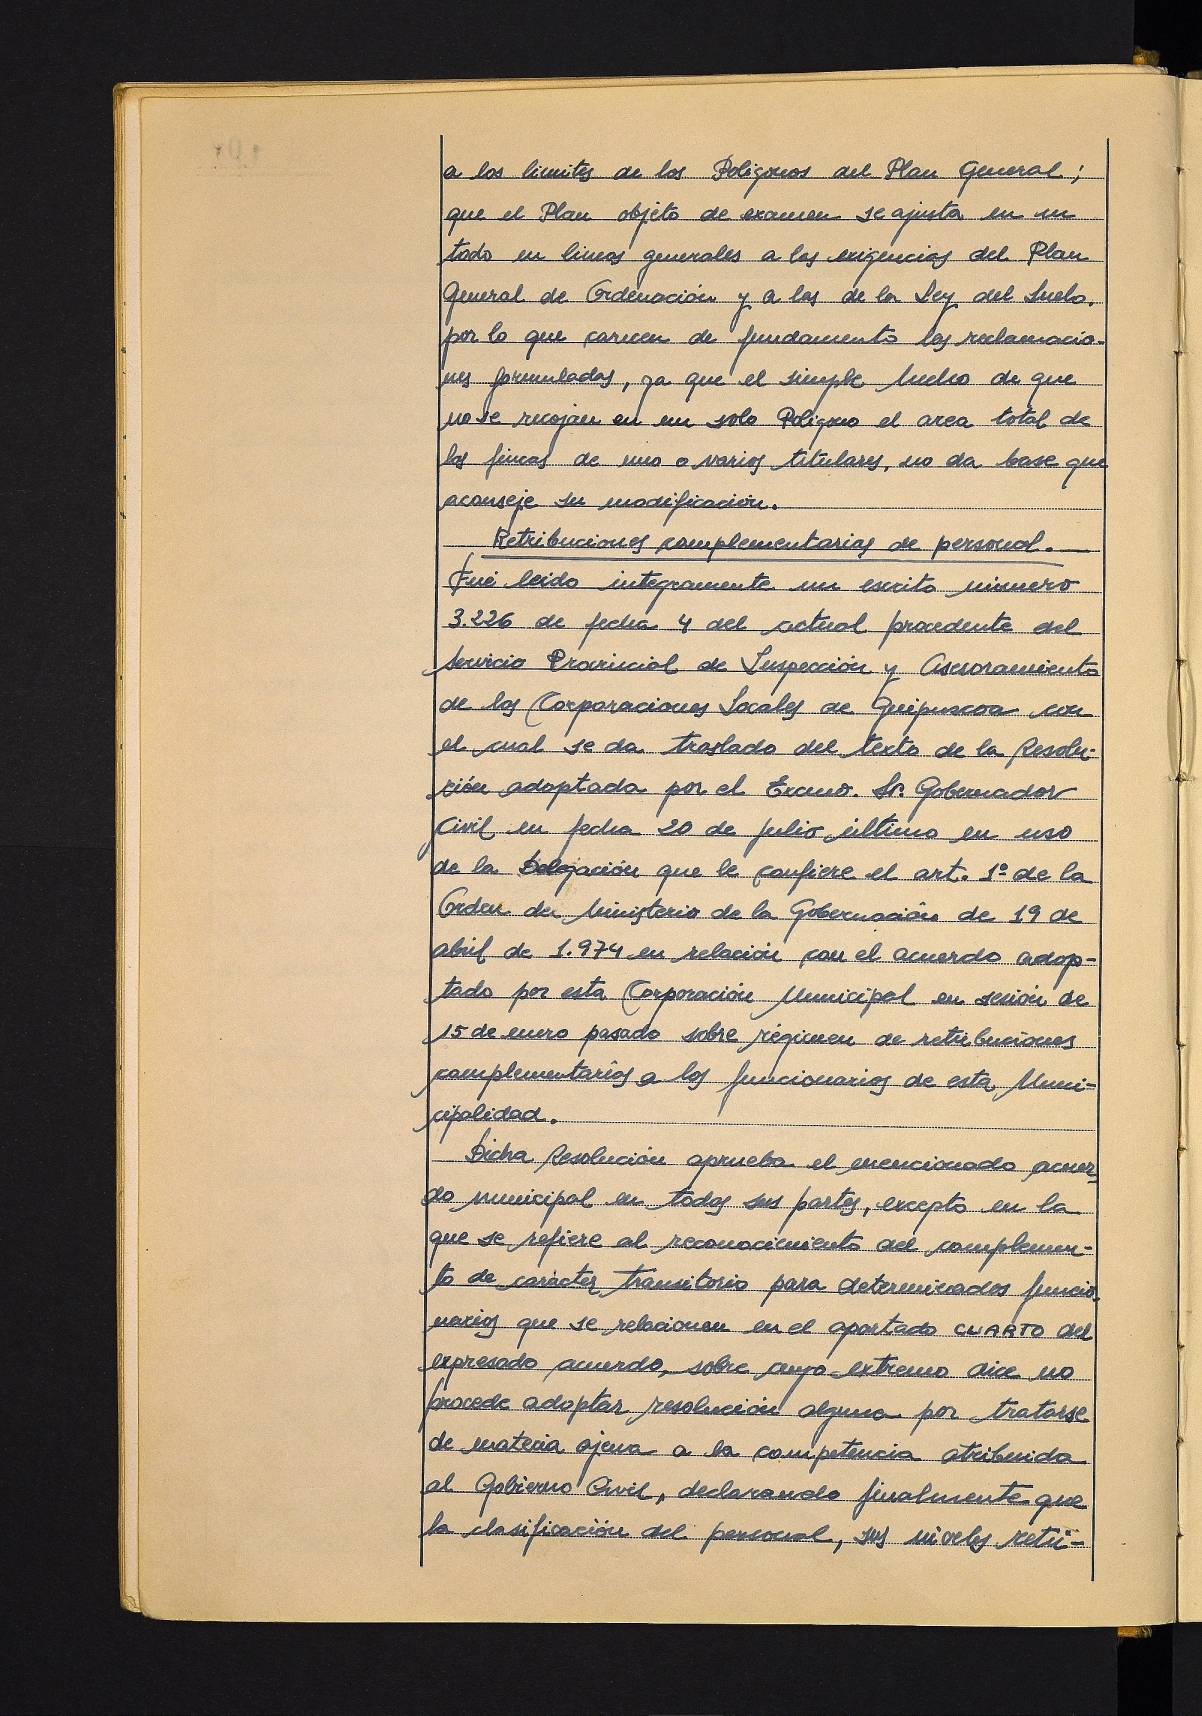 a los limites de los Poligonos del Plan General;
que el Plan objeto de examen se ajusta en un
todo en lineas generales a las exigencias del Plan
General de Ordenación y a las de la Ley del Suelo,
por lo que carecen de fundamento las reclamacio-
nes formuladas, ya que el simple hecho de que
no se recojan en un solo Poligono el area total de
las fincas de uno o varios titulares, no da base que
aconseje su modificación.
Retribuciones complementarias de personal.
Fué leido integramente un escrito número
3.226 de fecha 4 del actual procedente del
Servicio Provincial de Inspección y Asesoramiento
de las Corporaciones Locales de Guipuzcoa con
el cual se da traslado del texto de la Resolu-
ción adoptada por el Excmo. Sr. Gobernador
Civil en fecha 20 de julio último en uso
de la Delegación que le confiere el art. 1º de la
Orden del Ministerio de la Gobernación de 19 de
abril de 1.974 en relación con el acuerdo adop-
tado por esta Corporación Municipal en sesión de
15 de enero pasado sobre régimen de retribuciones
complementarias a los funcionarios de esta Muni-
cipalidad.
Dicha Resolución aprueba el mencionado acuer-
do municipal en todas sus partes, excepto en la
que se refiere al reconocimiento del complemen-
to de carácter transitorio para determinados funcio-
narios que se relacionan en el apartado CUARTO del
expresado acuerdo, sobre cuyo extremo dice no
procede adoptar resolución alguna por tratarse
de materia ajena a la competencia atribuida
al Gobierno Civil, declarando finalmente que
la clasificación del personal, sus niveles retri-